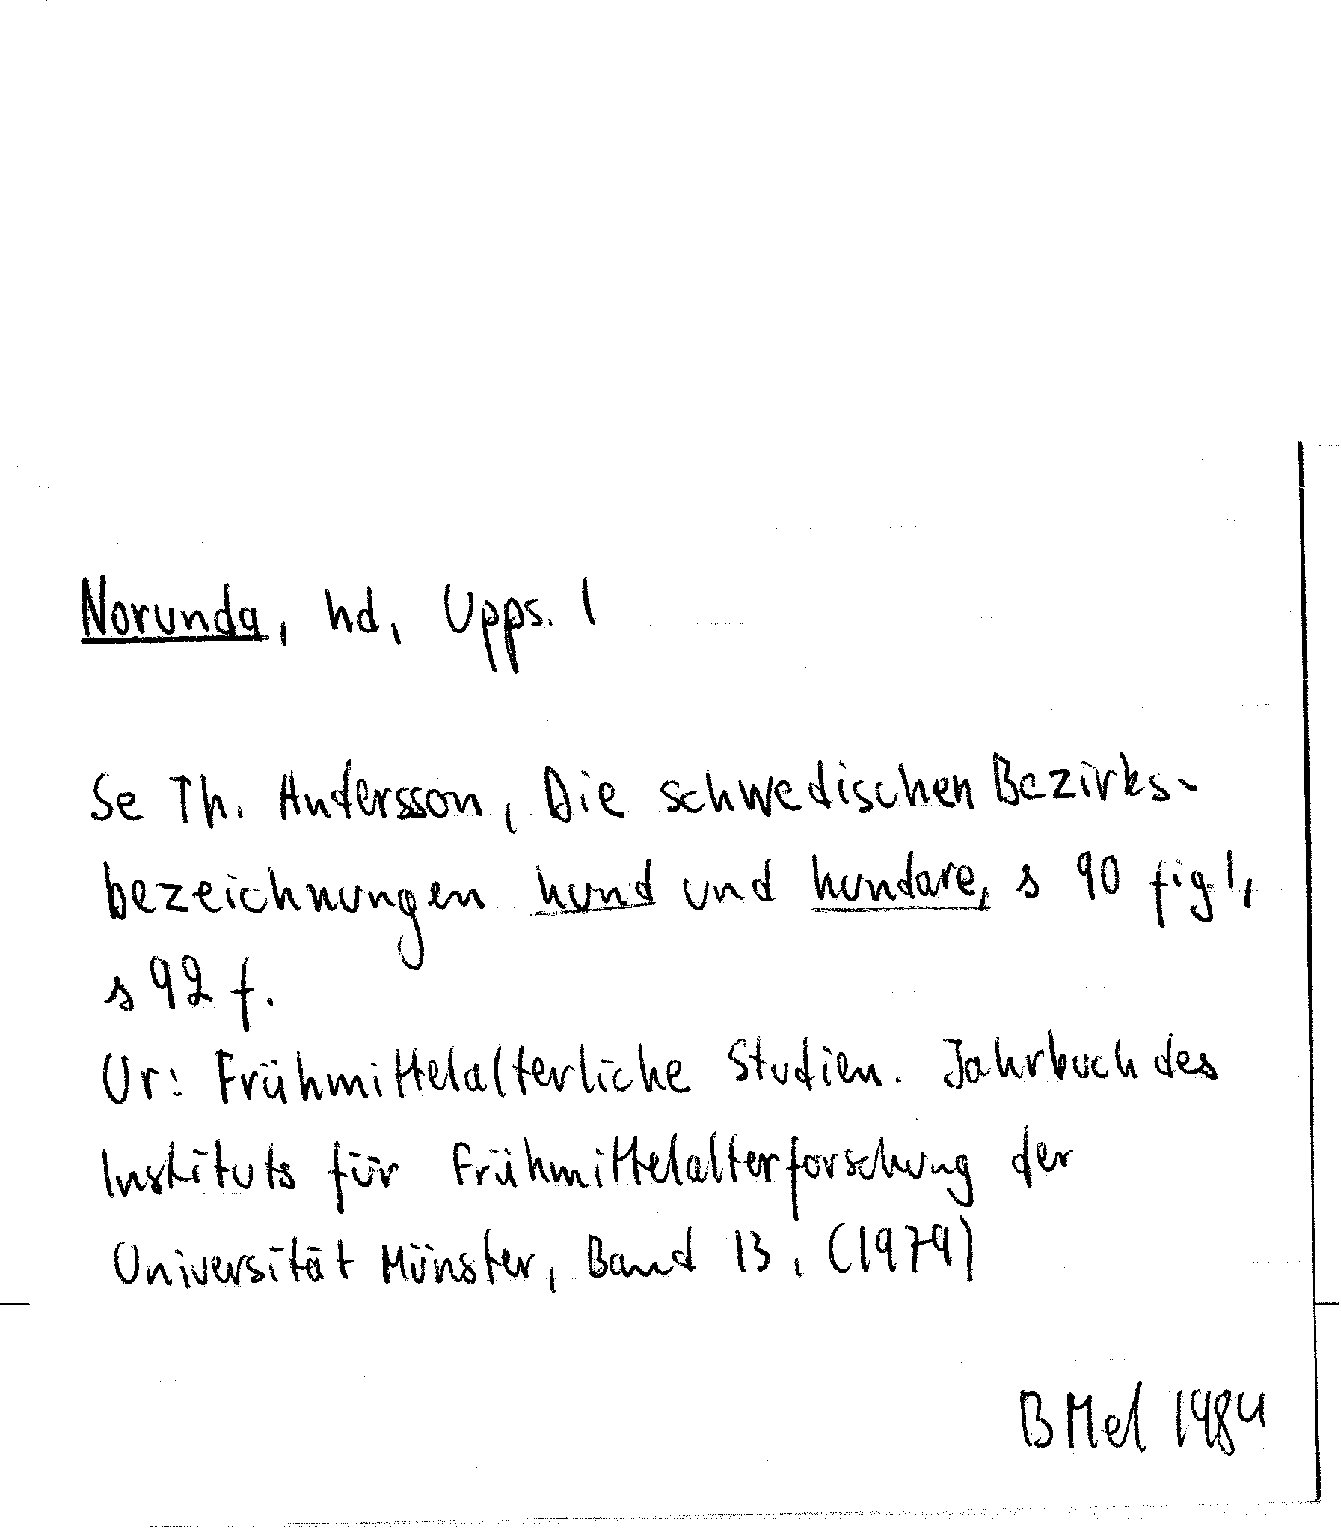 Norunda, hd, Upps. l
Se Th. Andersson, Die schwedischen Bezirks-
bezeichnungen hund und hundare, s 90 fig 1,
s 92 f.
Ur: Frühmittelalterliche Studien. Jahrbuch des
Instituts für Frühmittelalterforschung der
Universität Münster, Band 13, (1979)
B Mel 1984